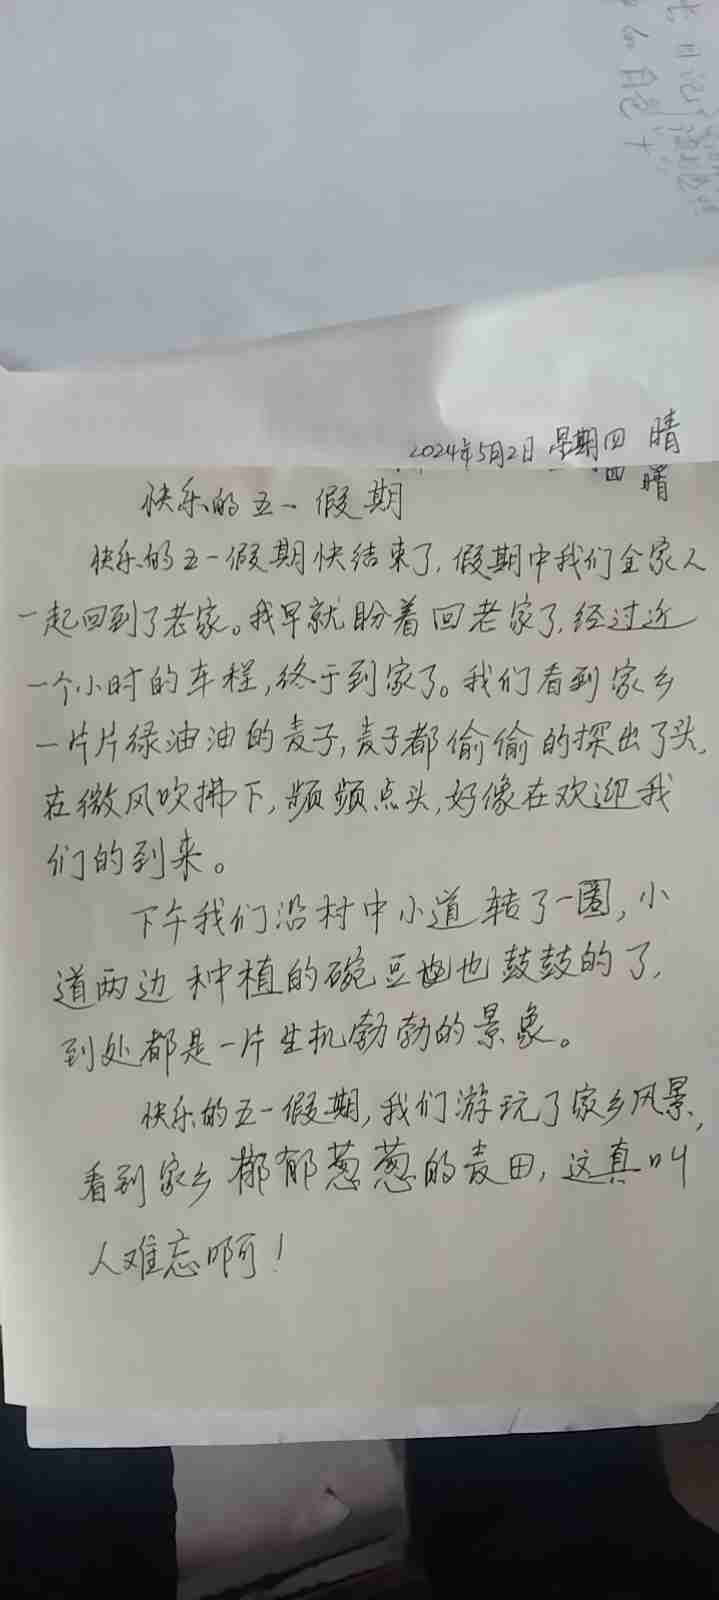 2024年5月2日 星期四 晴
四 晴
快乐的五一假期
快乐的五一假期快结束了,假期中我们全家人
一起回到了老家。我早就盼着回老家了,经过近
一个小时的车程,终于到家了。我们看到家乡
一片片绿油油的麦子,麦子都偷偷的探出了头,
在微风吹拂下,频频点头,好像在欢迎我
们的到来。
下午我们沿村中小道转了一圈,小
道两边种植的碗豆也鼓鼓的了,
到处都是一片生机勃勃的景象。
快乐的五一假期,我们游玩了家乡风景,
看到家乡郁郁葱葱的麦田,这真叫
人难忘啊!